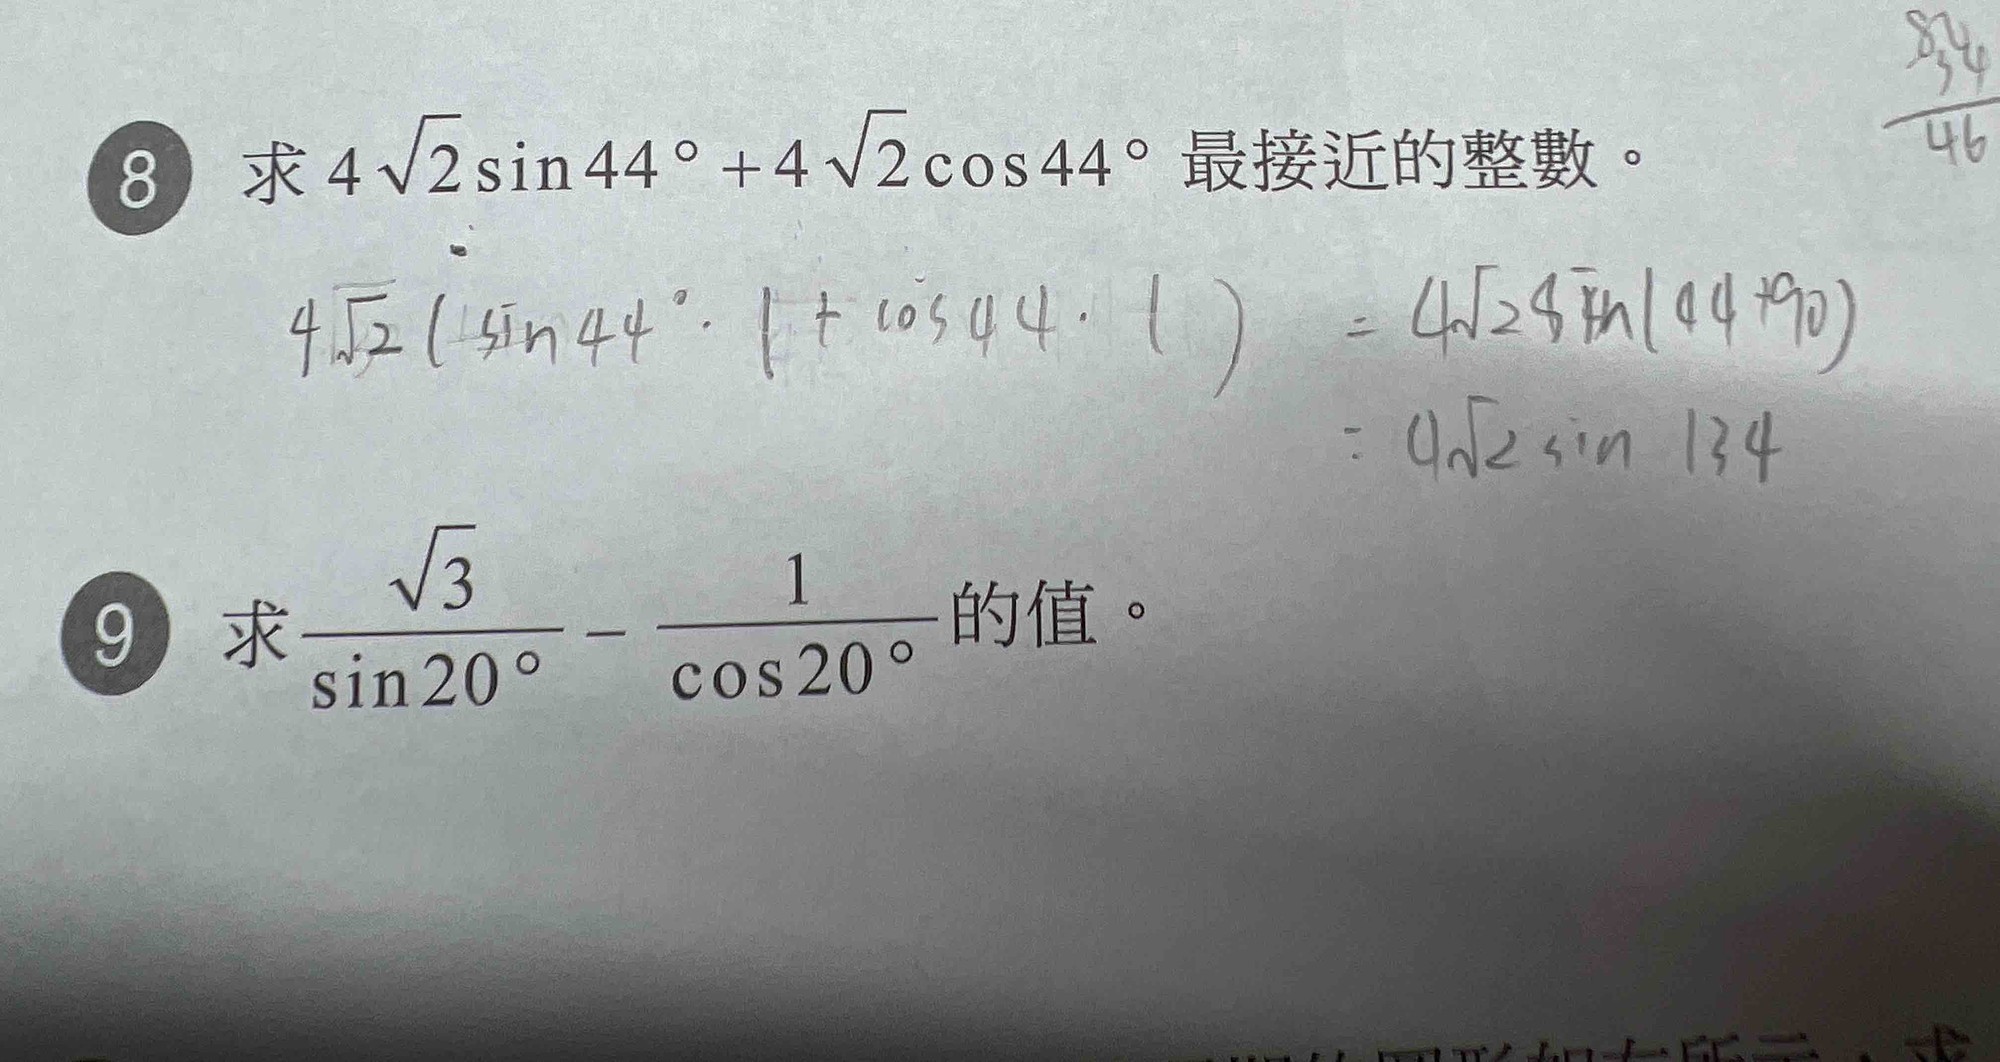 8 求 4√2 sin44° + 4√2 cos44° 最接近的整數。
4√2 ( sin44° · 1 + cos44 · 1 ) = 4√2 sin(44+90)
= 4√2 sin 134
46
9 求 √3/sin20° − 1/cos20° 的值。